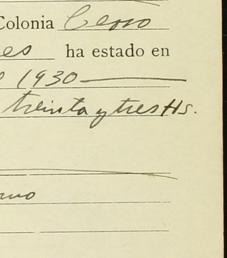 Colonia Cerro
es ha estado en
1930
treinta y tres Hs.